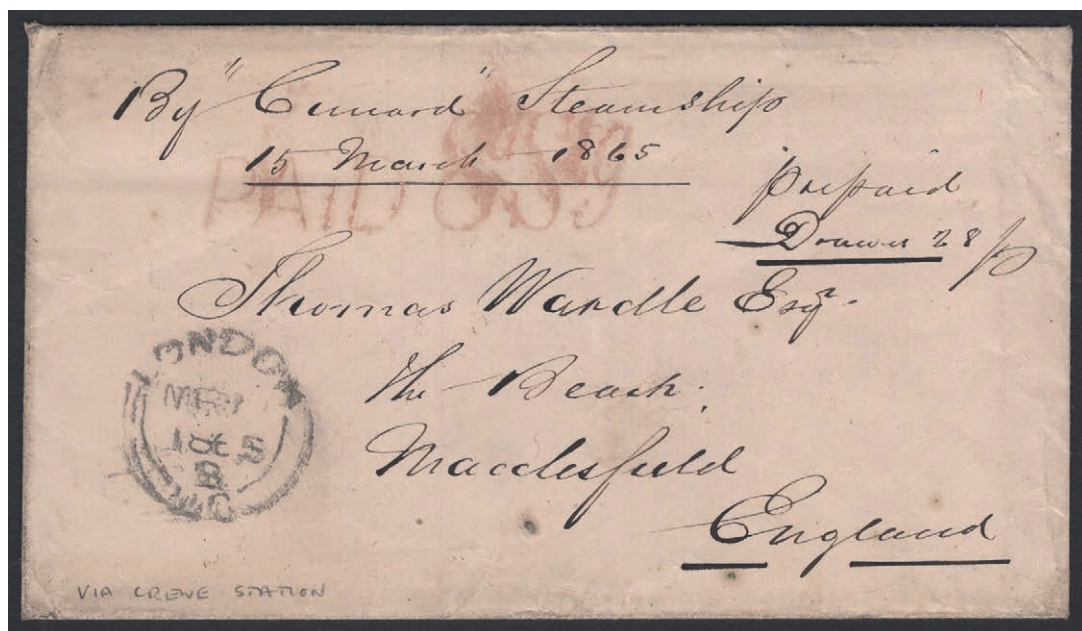 By "Cunard" Steamship
15 March 1865
PAID
prepaid
Drawer 28
Thomas Wardle Esqr.
The Beach.
Macclesfield
England
LONDON
MR
1865
VIA CREWE STATION